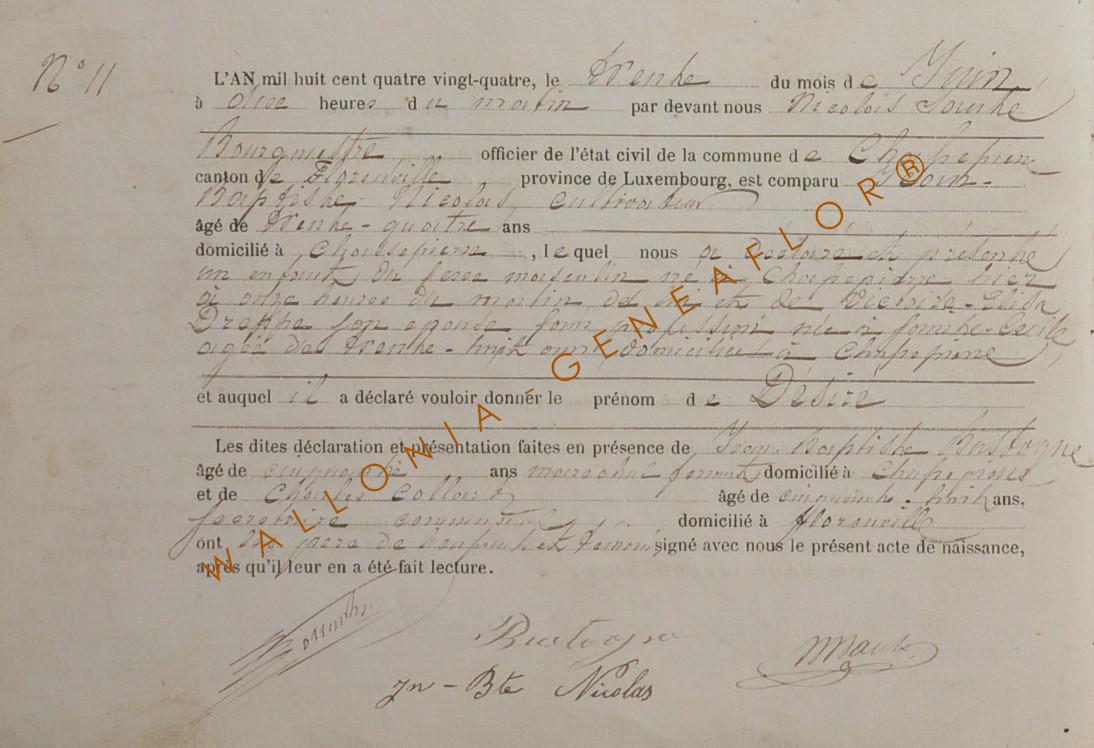 N° 11
L'AN mil huit cent quatre vingt-quatre, le trente du mois de Juin
à dix heures du matin par devant nous Nicolas
Bourgmestre officier de l'état civil de la commune de Chassepierre
canton de Florenville province de Luxembourg, est comparu Jean-
Baptiste Nicolas, cultivateur
âgé de trente-quatre ans
domicilié à Chassepierre, lequel nous a déclaré et présenté
un enfant du sexe masculin né à Chassepierre hier
à onze heures du matin de lui et de
son épouse sans profession née à
agée de trente-huit ans domiciliée à Chassepierre
et auquel il a déclaré vouloir donner le prénom de Désiré
Les dites déclaration et présentation faites en présence de Jean Baptiste Bastogne
âgé de cinquante ans maréchal ferrant domicilié à Chassepierre
et de Charles Collard âgé de cinquante-huit ans,
secrétaire communal domicilié à Florenville
ont les père de l'enfant et témoins signé avec nous le présent acte de naissance,
après qu'il leur en a été fait lecture.
Bastogne
Jn-Bte Nicolas
WALLONIA-GENEAFLOR®